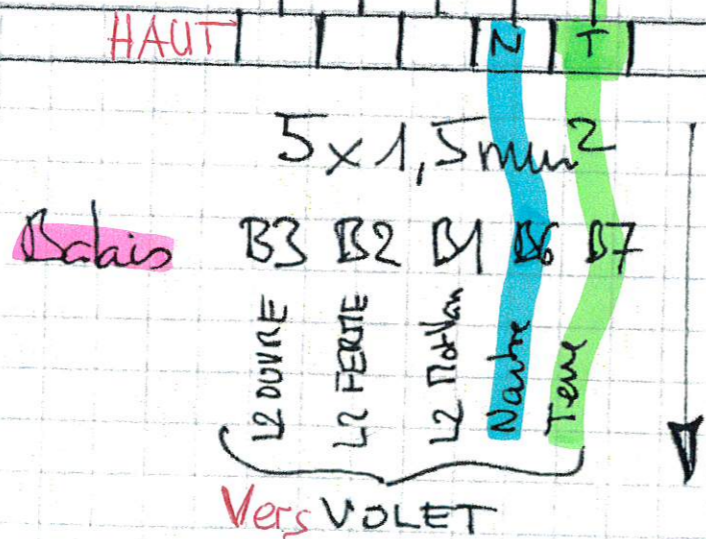 HAUT N T
5x1,5mm²
Balais B3 B2 B1 B6 B7
L2 OUVRE
L2 FERME
L2
Neutre
Terre
Vers VOLET